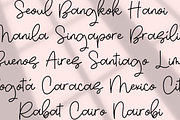 Seoul Bangkok Hanoi
Manila Singapore Brasíli
Buenos Aires Santiago Lim
Bogotá Caracas Mexico Cit
Rabat Cairo Nairobi